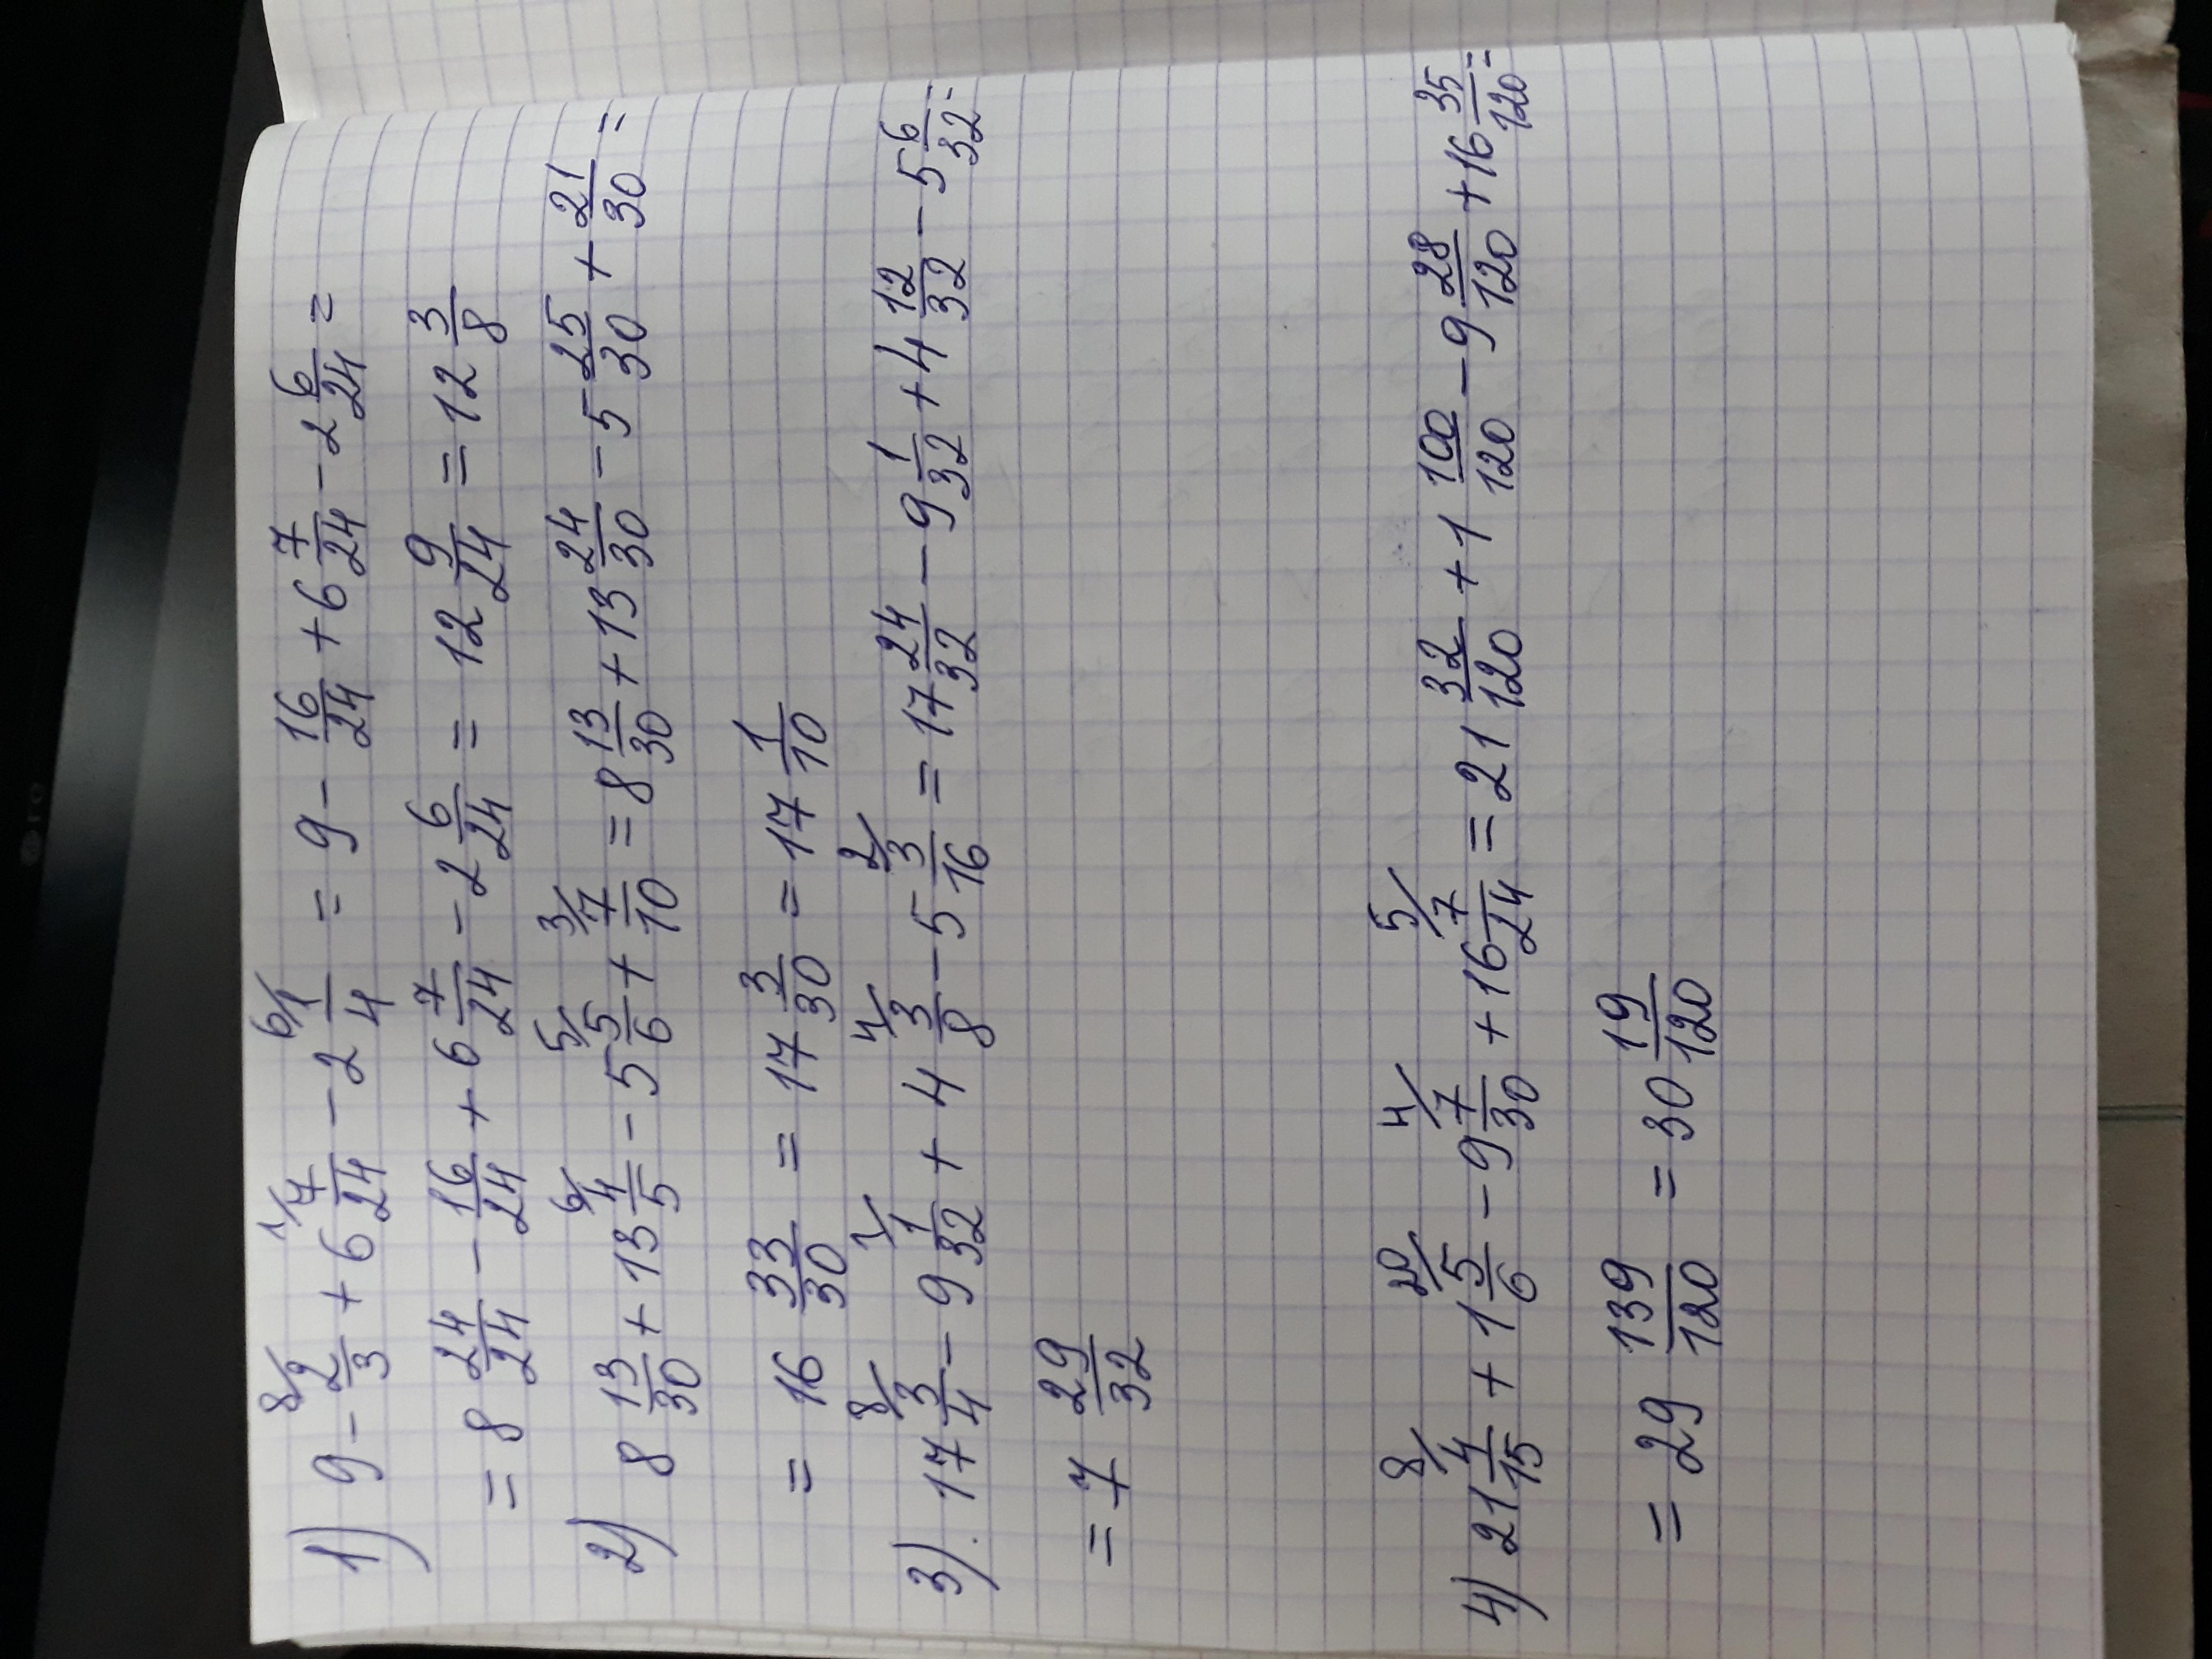 1) 9 - 8/ 2/3 + 6 1/ 7/24 - 2 6/ 1/4 = 9 - 16/24 + 6 7/24 - 2 6/24 =
= 8 24/24 - 16/24 + 6 7/24 - 2 6/24 = 12 9/24 = 12 3/8
2) 8 13/30 + 13 6/ 4/5 - 5 5/ 5/6 + 3/ 7/10 = 8 13/30 + 13 24/30 - 5 25/30 + 21/30 =
= 16 33/30 = 17 3/30 = 17 1/10
3). 17 8/ 3/4 - 9 1/ 1/32 + 4 4/ 3/8 - 5 2/ 3/16 = 17 24/32 - 9 1/32 + 4 12/32 - 5 6/32 =
= 7 29/32
4) 21 8/ 4/15 + 1 20/ 5/6 - 9 4/ 7/30 + 16 5/ 7/24 = 21 32/120 + 1 100/120 - 9 28/120 + 16 35/120 =
= 29 139/120 = 30 19/120